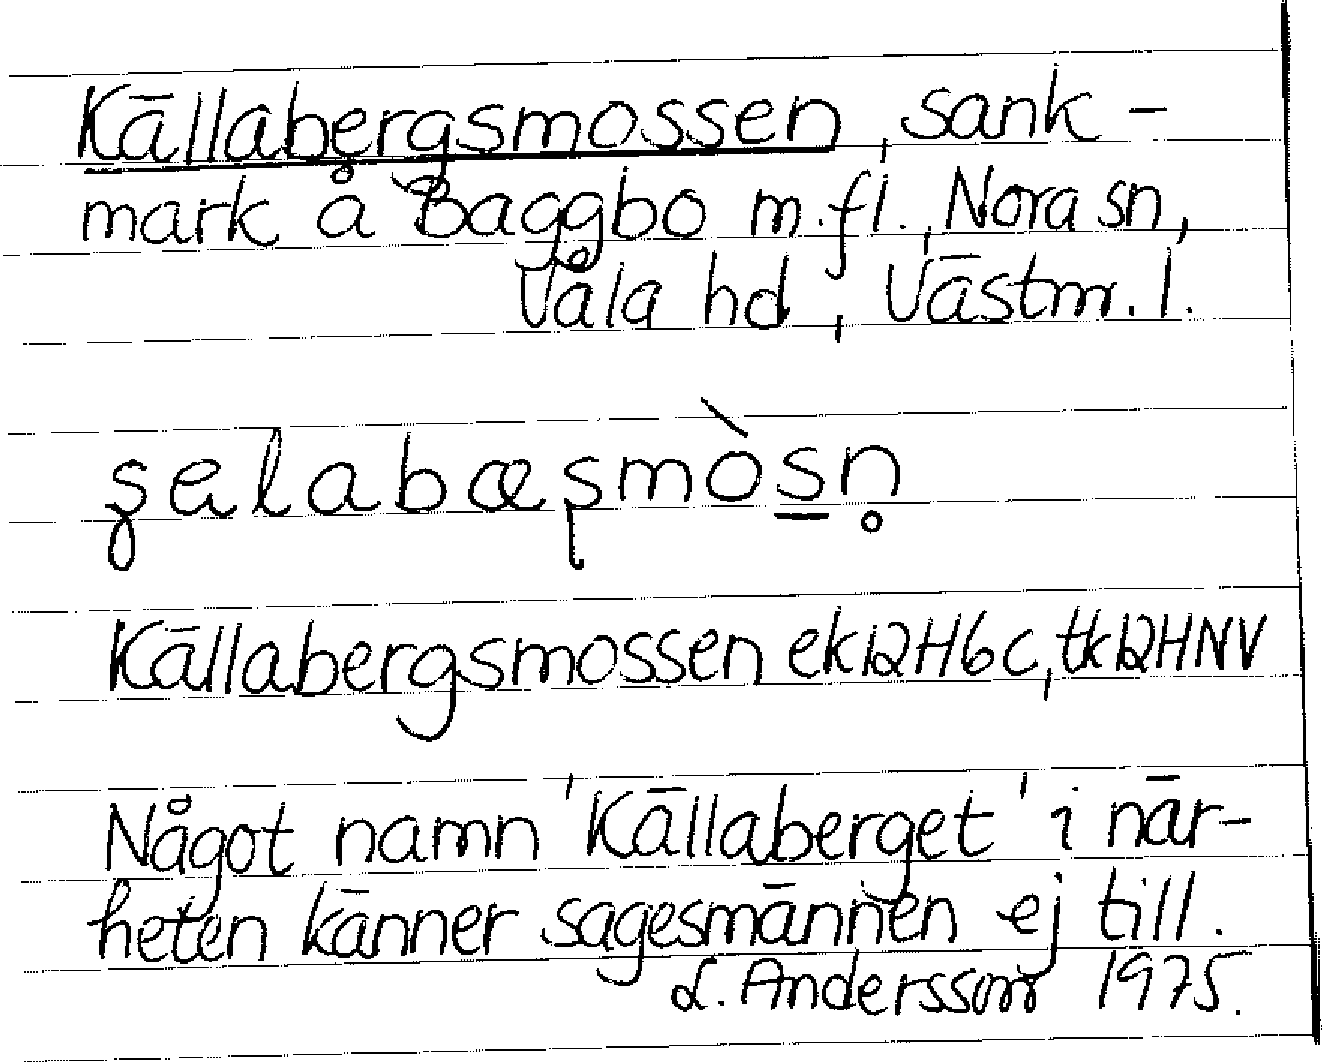 Källabergsmossen, sank-
mark å Baggbo m.fl., Nora sn,
Våla hd, Västm. l.
Källabergsmossen ek12H6c, tk12HNV
Något namn 'Källaberget' i när-
heten känner sagesmännen ej till.
L. Andersson 1975.